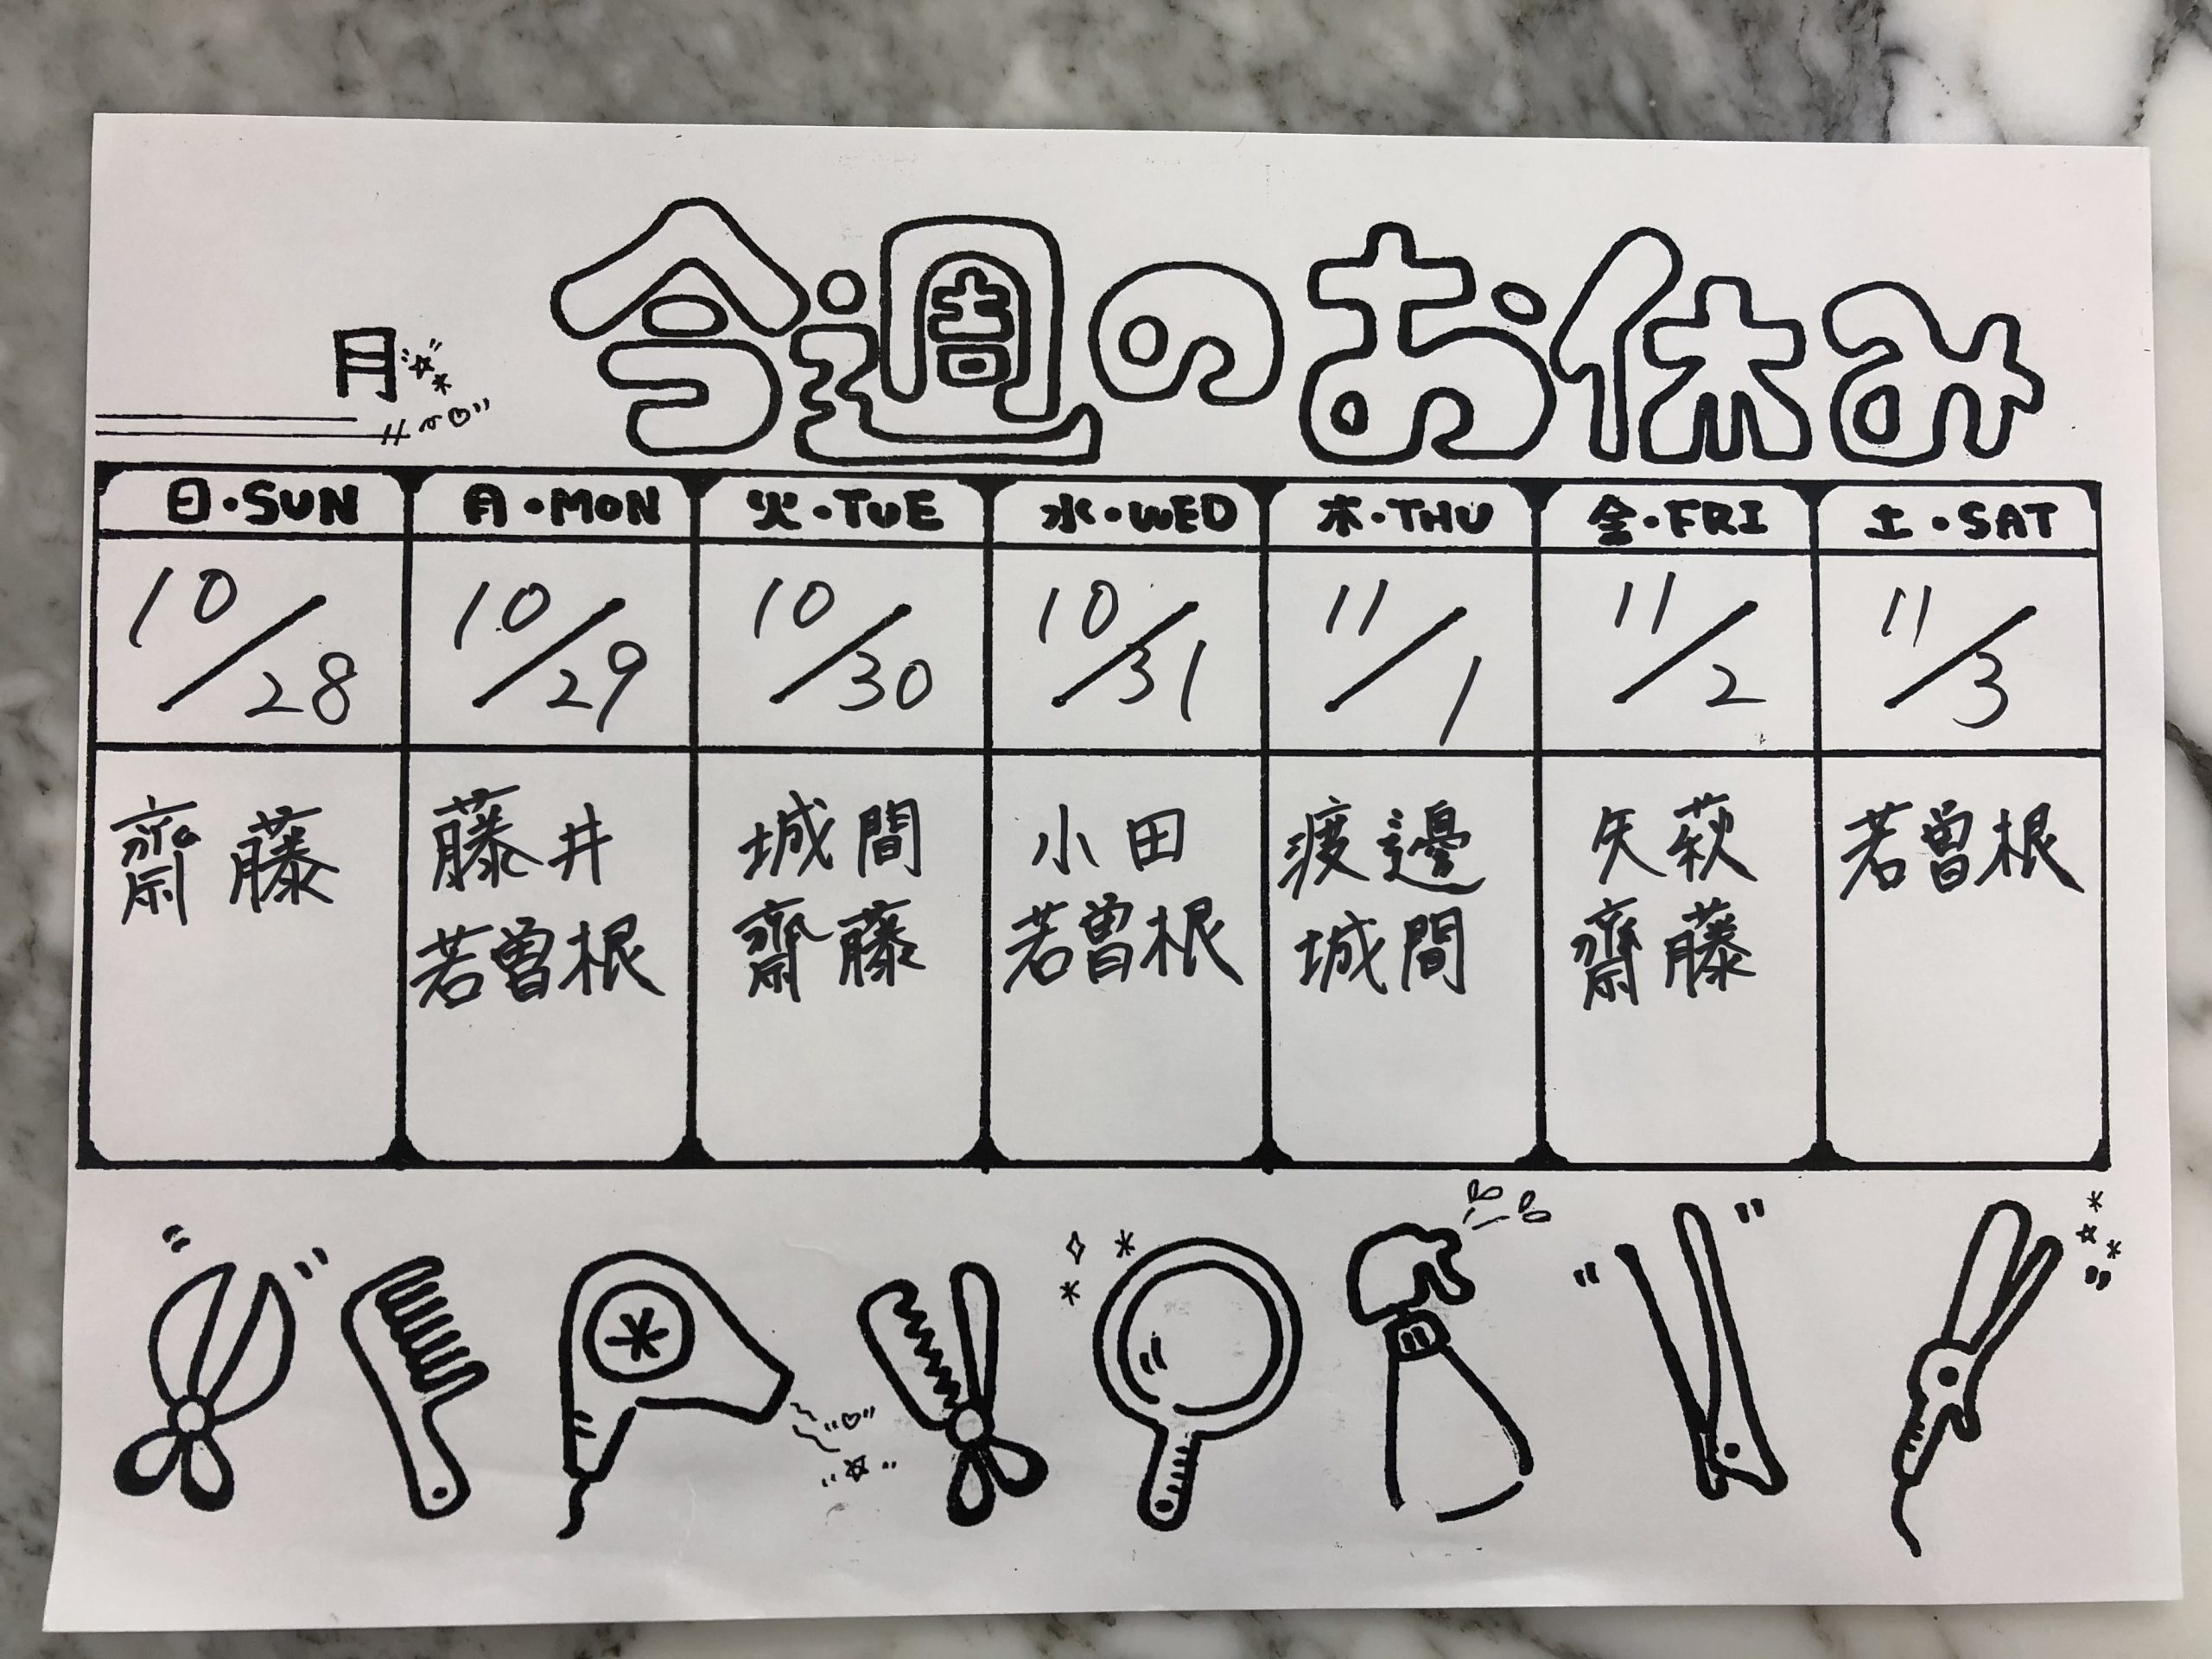 月
今週のお休み
日・SUN 月・MON 火・TUE 水・WED 木・THU 金・FRI 土・SAT
10/28 10/29 10/30 10/31 11/1 11/2 11/3
齋藤 藤井 城間 小田 渡邊 矢萩 若曽根
若曽根 齋藤 若曽根 城間 齋藤